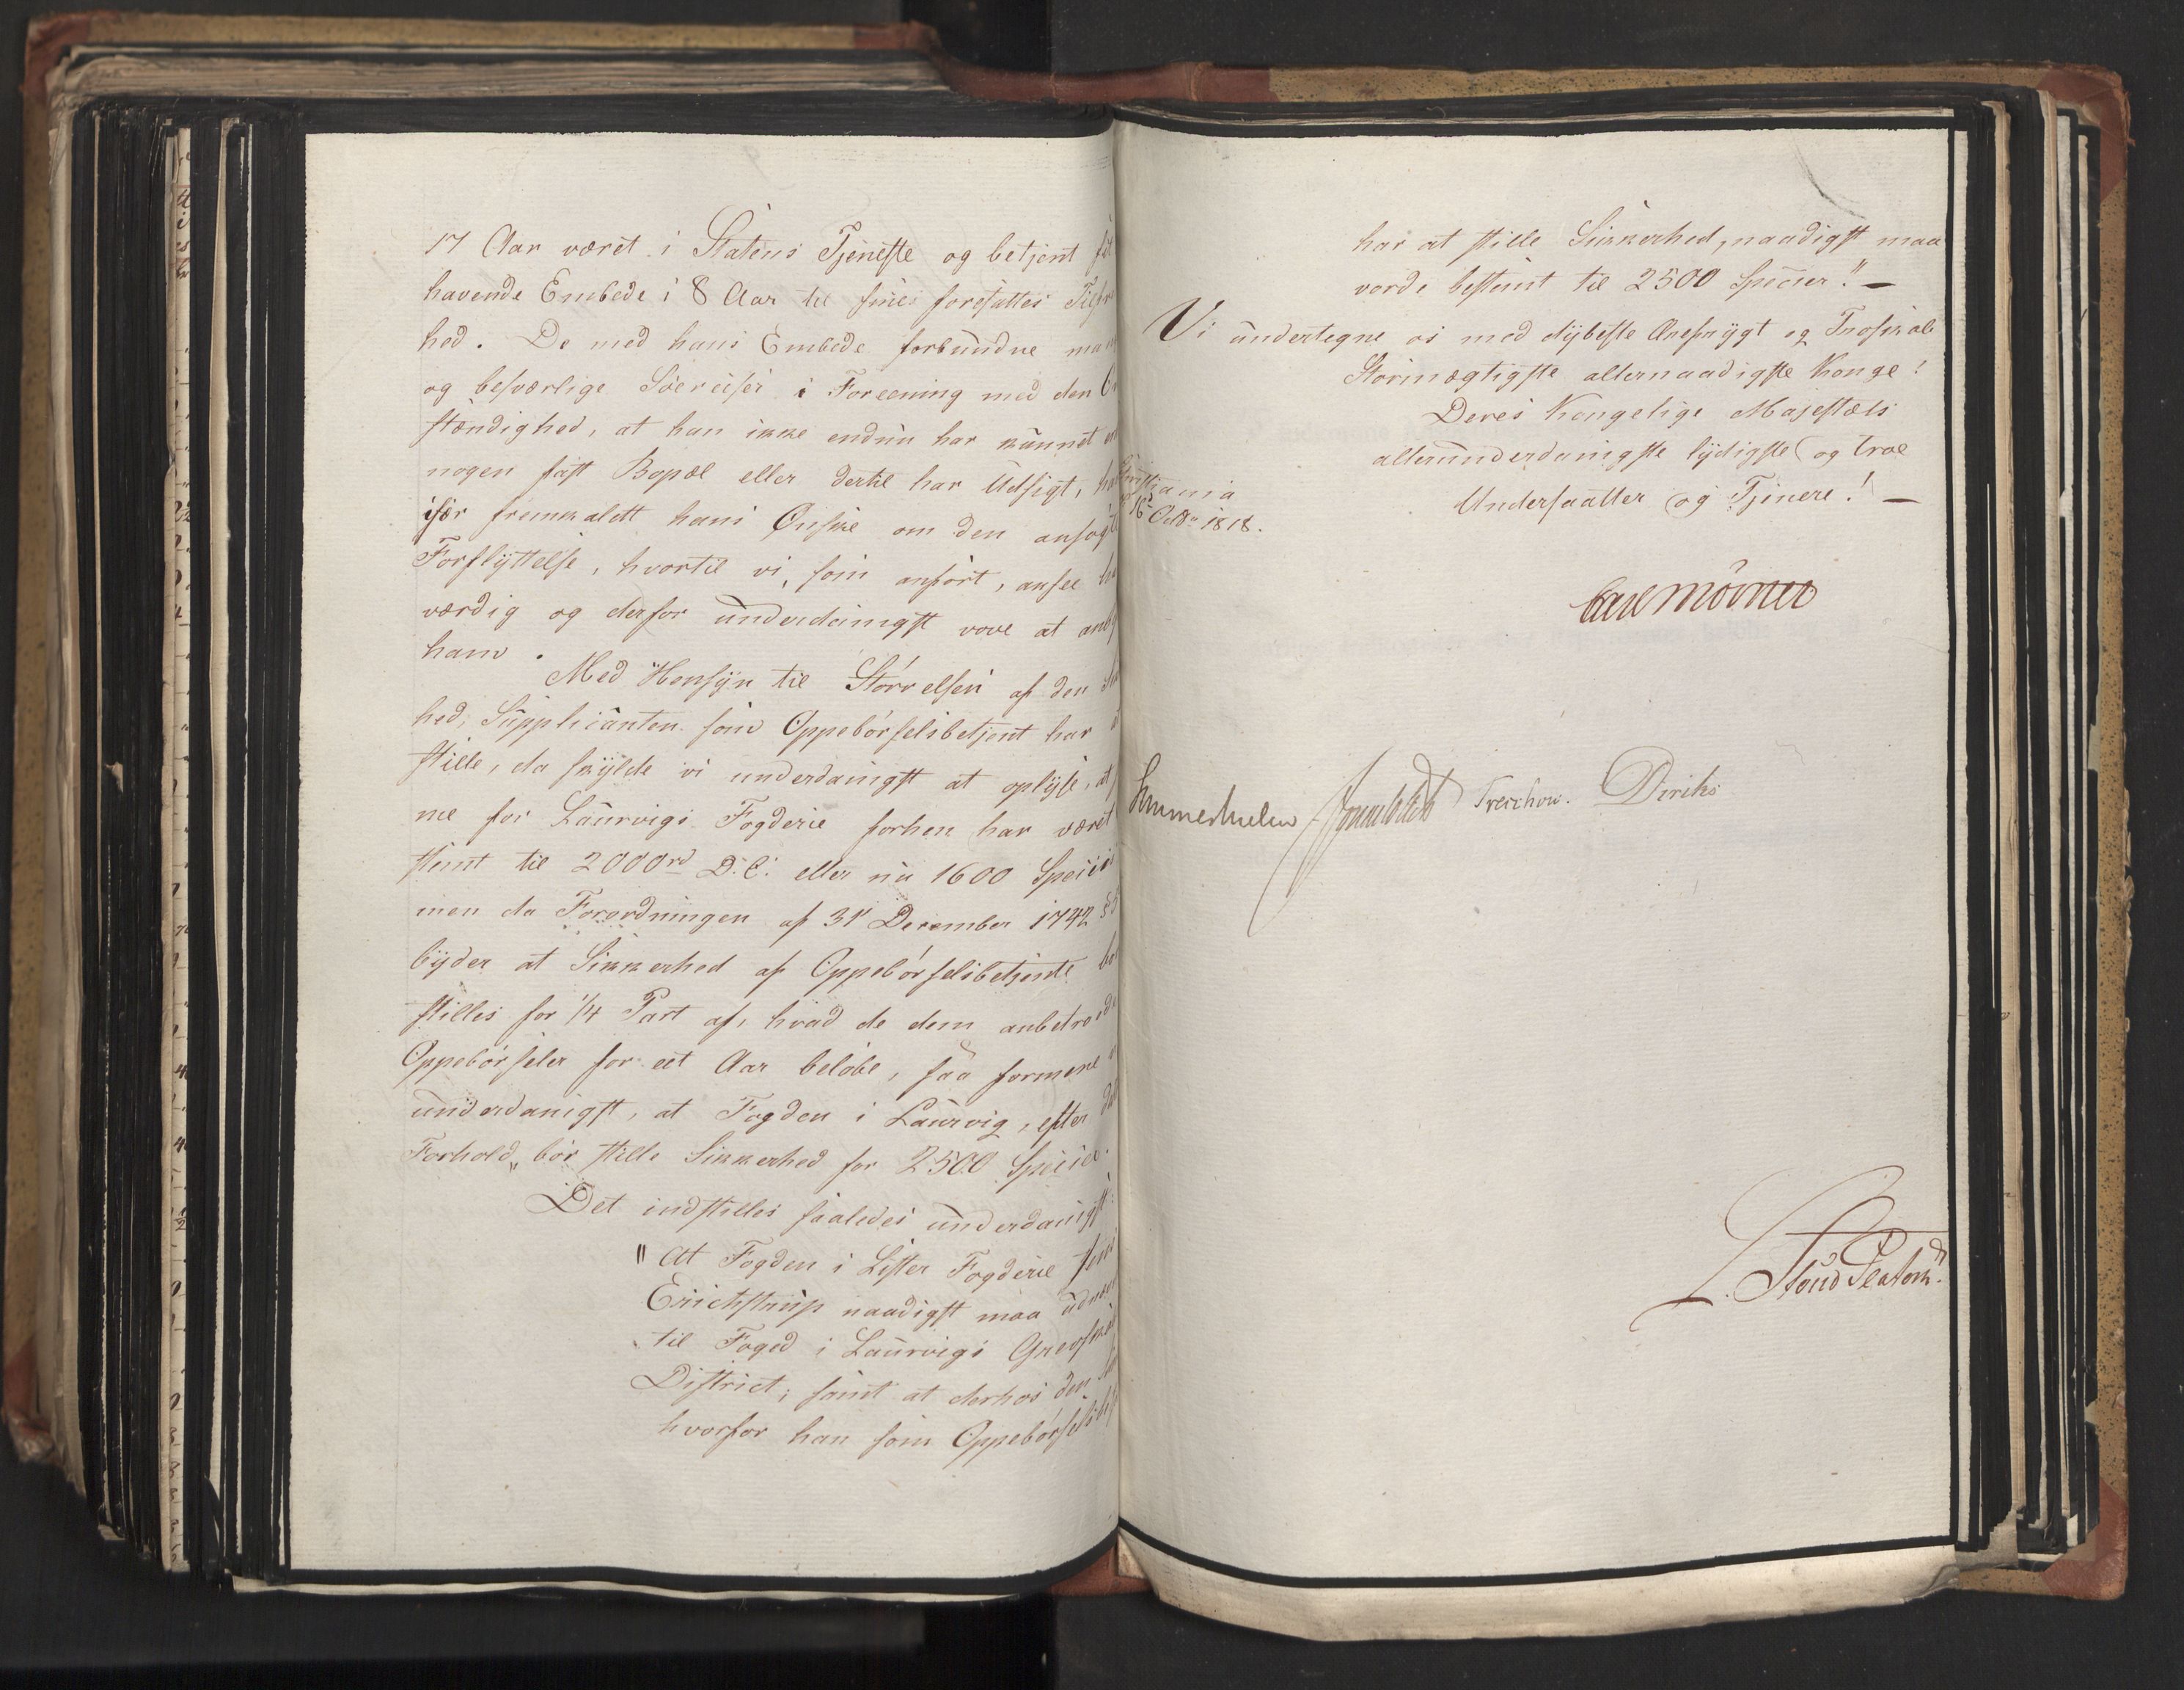 17 Aar været i Statens Tjeneste og betjent
havende Embede i 8 Aar til sines foresattes
hed. De med hans Embede forbundne
og besværlige Söereiser i Foreening med den
stændighed, at han ikke endnu har kunnet
nogen fast Bopæl eller dertil har Udsigt,
især fremkaldt hans Ønske om den ansøgte
Forflyttelse, hvortil vi, som anført, ansee
værdig og derfor underdanigst vove at
ham.
Med Hensyn til Størrelsen af den
hed, Supplicanten som Oppebørselsbetjent har
stille, da skylde vi underdanigst at oplyse, at
ne for Laurvigs Fogderie forhen har været
stemt til 2000 rd D.C. eller nu 1600 Species
men da Forordningen af 31 December 1742 §
byder at Sikkerhed af Oppebørselsbetjente
stilles for 1/4 Part af, hvad de dem anbetroede
Oppebørseler for eet Aar beløbe, saa formene
underdanigst, at Fogden i Laurvig, efter
Forhold, bør stille Sikkerhed for 2500 Species.
Det indstilles saaledes underdanigst:
"At Fogden i Lister Fogderie
Erichstrup naadigst maa
til Foged i Laurvigs Grevskabs
District; samt at derhos den
hvorfor han som
har at stille Sikkerhed, naadigst maa
vorde bestemt til 2500 Species!" —
Vi undertegne os med dybeste Ærefrygt og Troskab
Stormægtigste allernaadigste Konge!
Deres Kongelige Majestæts
allerunderdanigste lydigste og troe
Undersaatter og Tjenere! —
Christiania
16 Octbr 1818.
Carl Mörner
Sommerhielm Treschow. Diriks